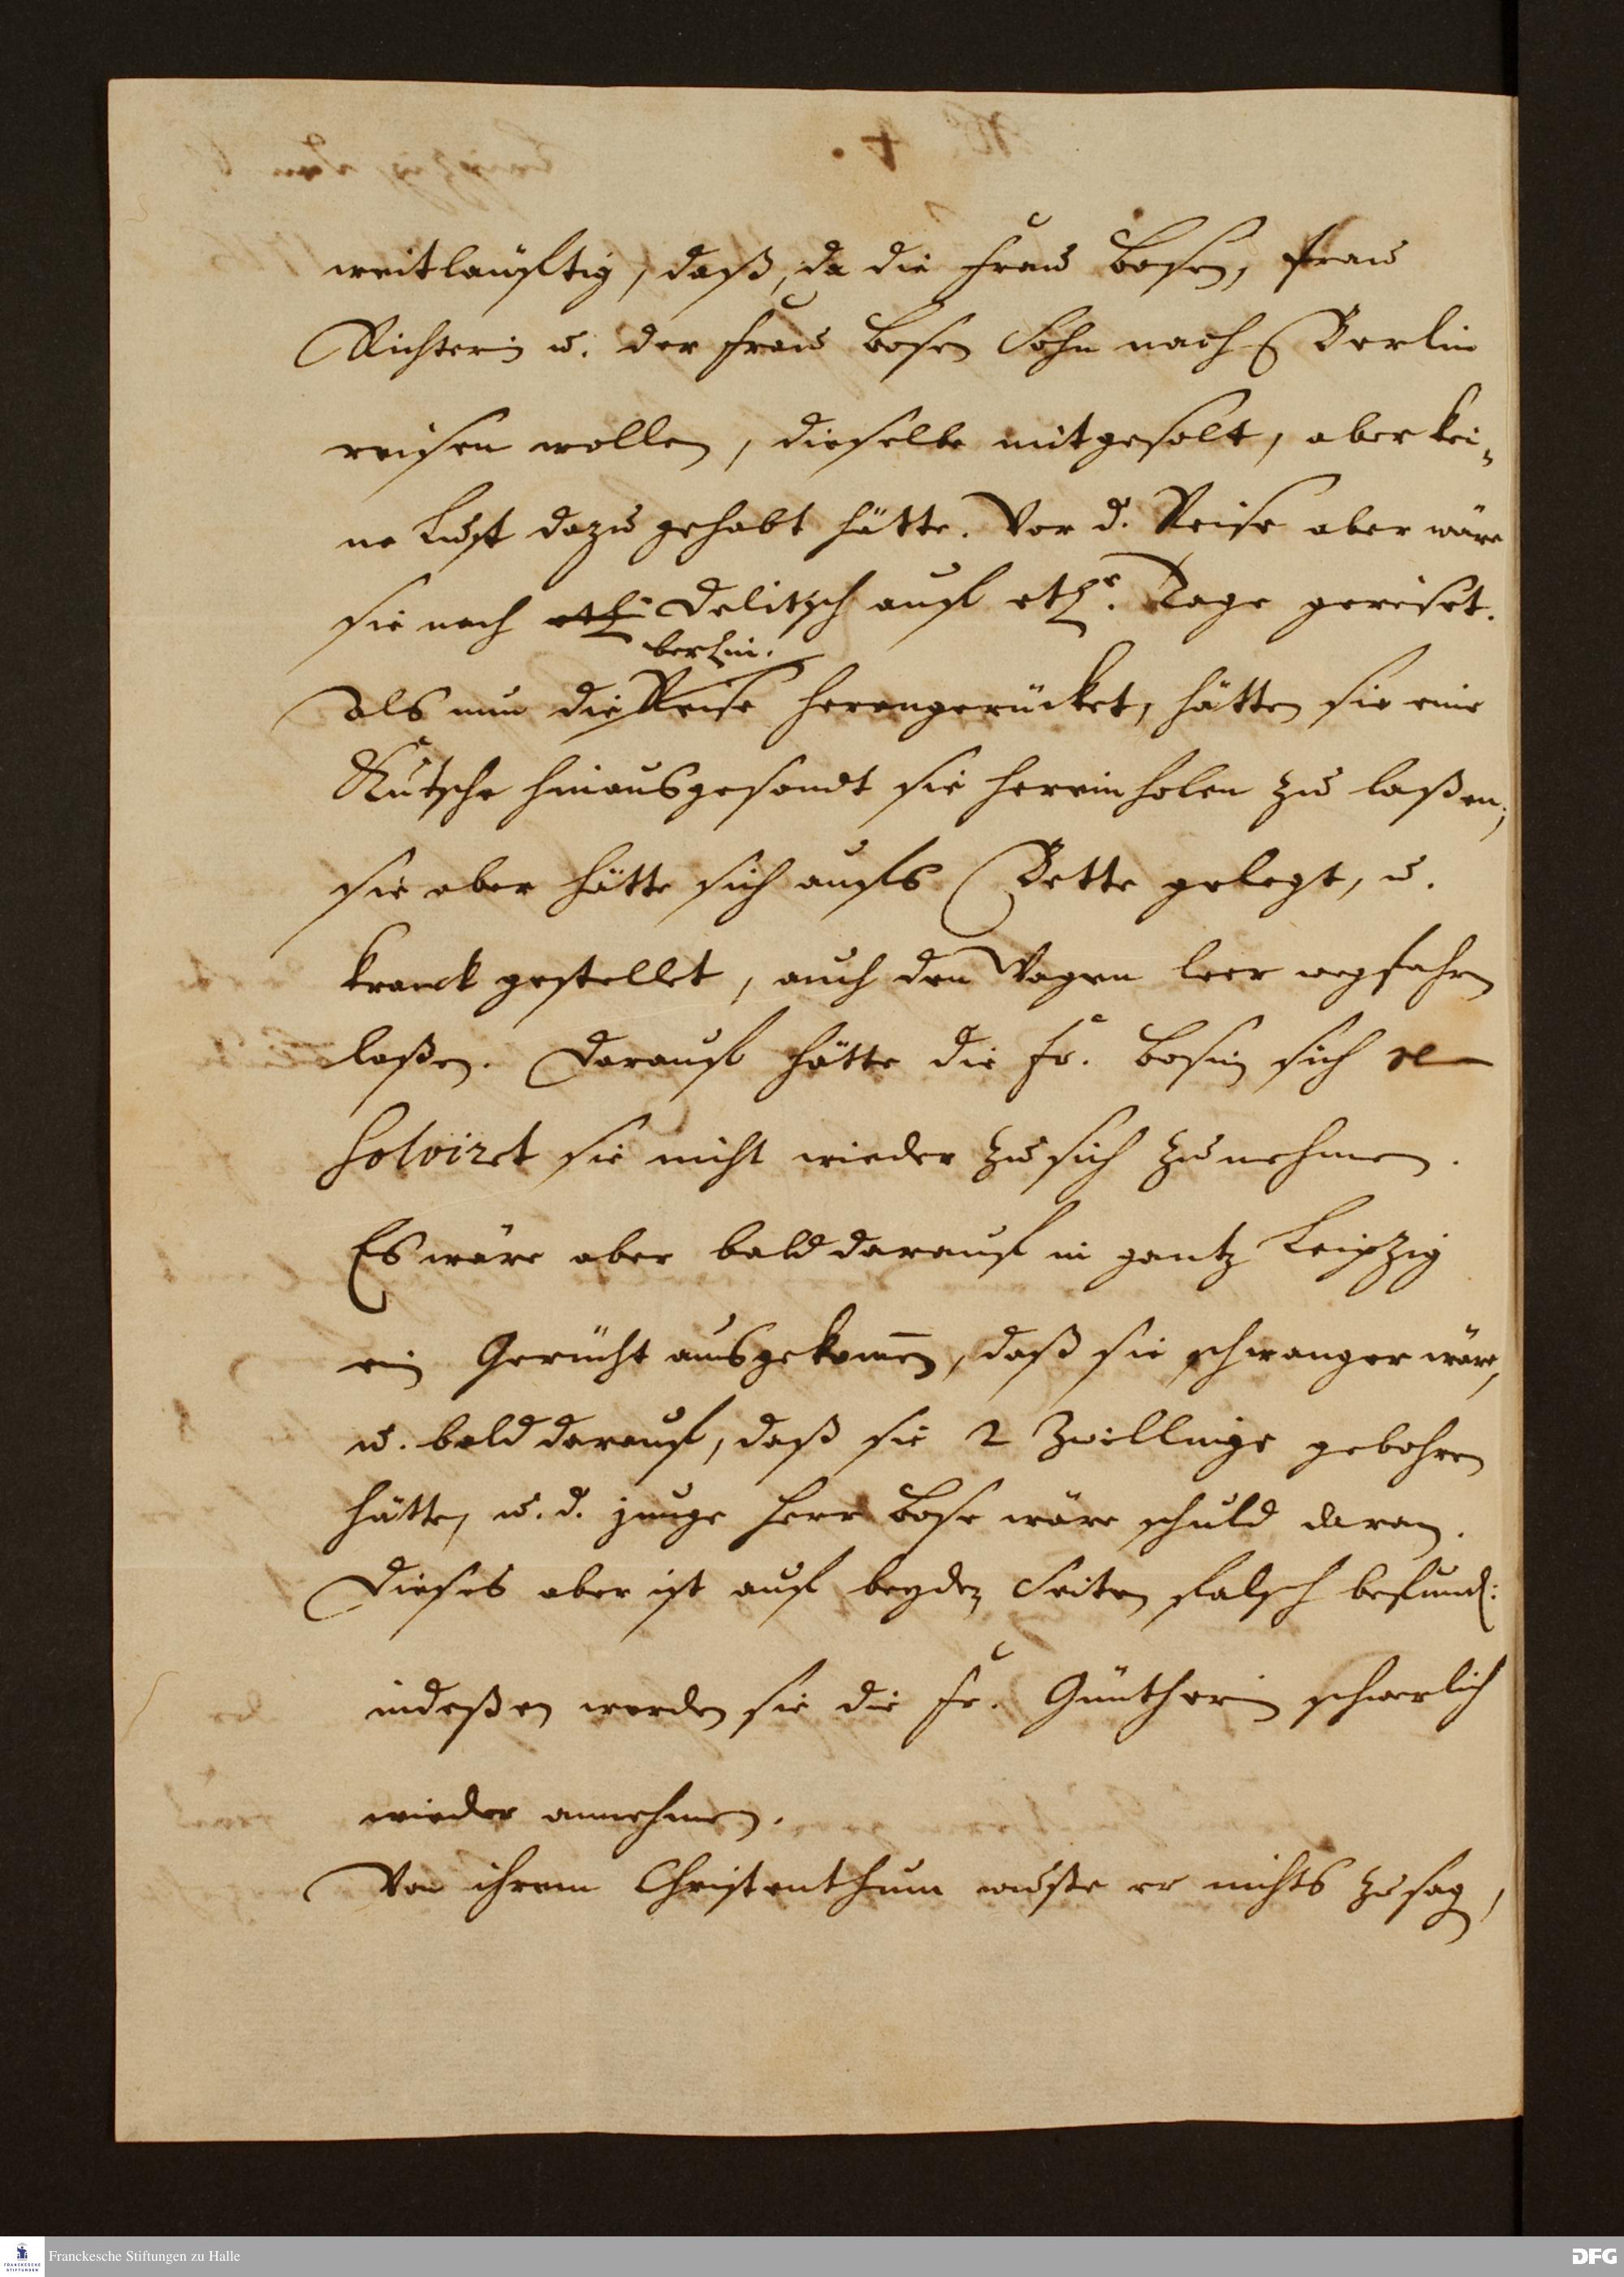 weitläufftig, daß, da die Frau Bosen, Frau
Richterin u. der Frau Bosen Sohn nach Berlin
reisen wollen, dieselbe mitgesolt, aber kei-
ne Lust dazu gehabt hätte. Vor d. Reise aber wäre
sie nach etl. Delitzsch auf etl. Tage gereiset.
berlin.
Als nun die Reise herangerücket, hätten sie eine
Kutsche hinausgesandt sie hereinholen zu laßen,
sie aber hätte sich aufs Bette gelegt, u.
kranck gestellet, auch den Wagen leer wegfahren
laßen. Darauf hätte die Fr. Bosin sich re-
solviret sie nicht wieder zu sich zu nehmen.
Es wäre aber bald darauf in gantz Leipzig
ein Gerücht ausgekommen, daß sie schwanger wäre,
u. bald darauf, daß sie 2 Zwillinge gebohren
hätte, u. d. junge Herr Bose wäre schuld daran.
Dieses aber ist auf beyden Seiten falsch befund:
indeßen werden sie die Fr. Güntherin schwerlich
wieder annehmen.
Von ihrem Christenthum wuste er nichts zu sag,
Franckesche Stiftungen zu Halle
DFG